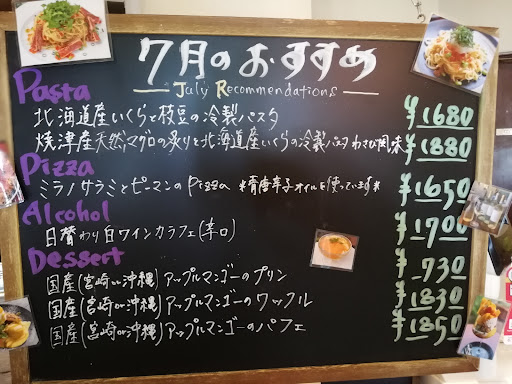 7月のおすすめ
July Recommendations
Pasta
北海道産いくらと枝豆の冷製パスタ ¥1680
焼津産天然マグロの炙りと北海道産いくらの冷製パスタ わさび風味 ¥1880
Pizza
ミラノサラミとピーマンのPizza *青唐辛子オイルを使っています* ¥1650
Alcohol
日替わり白ワインカラフェ(辛口) ¥1700
Dessert
国産(宮崎or沖縄)アップルマンゴーのプリン ¥730
国産(宮崎or沖縄)アップルマンゴーのワッフル ¥1830
国産(宮崎or沖縄)アップルマンゴーのパフェ ¥1850